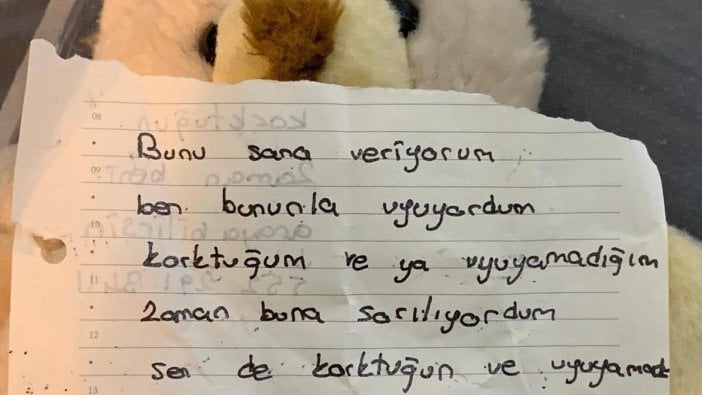 08
Bunu sana veriyorum
09
ben bununla uyuyordum
10
korktuğum ve ya uyuyamadığım
11
zaman buna sarılıyordum
12
sen de korktuğun ve uyuyamad
13